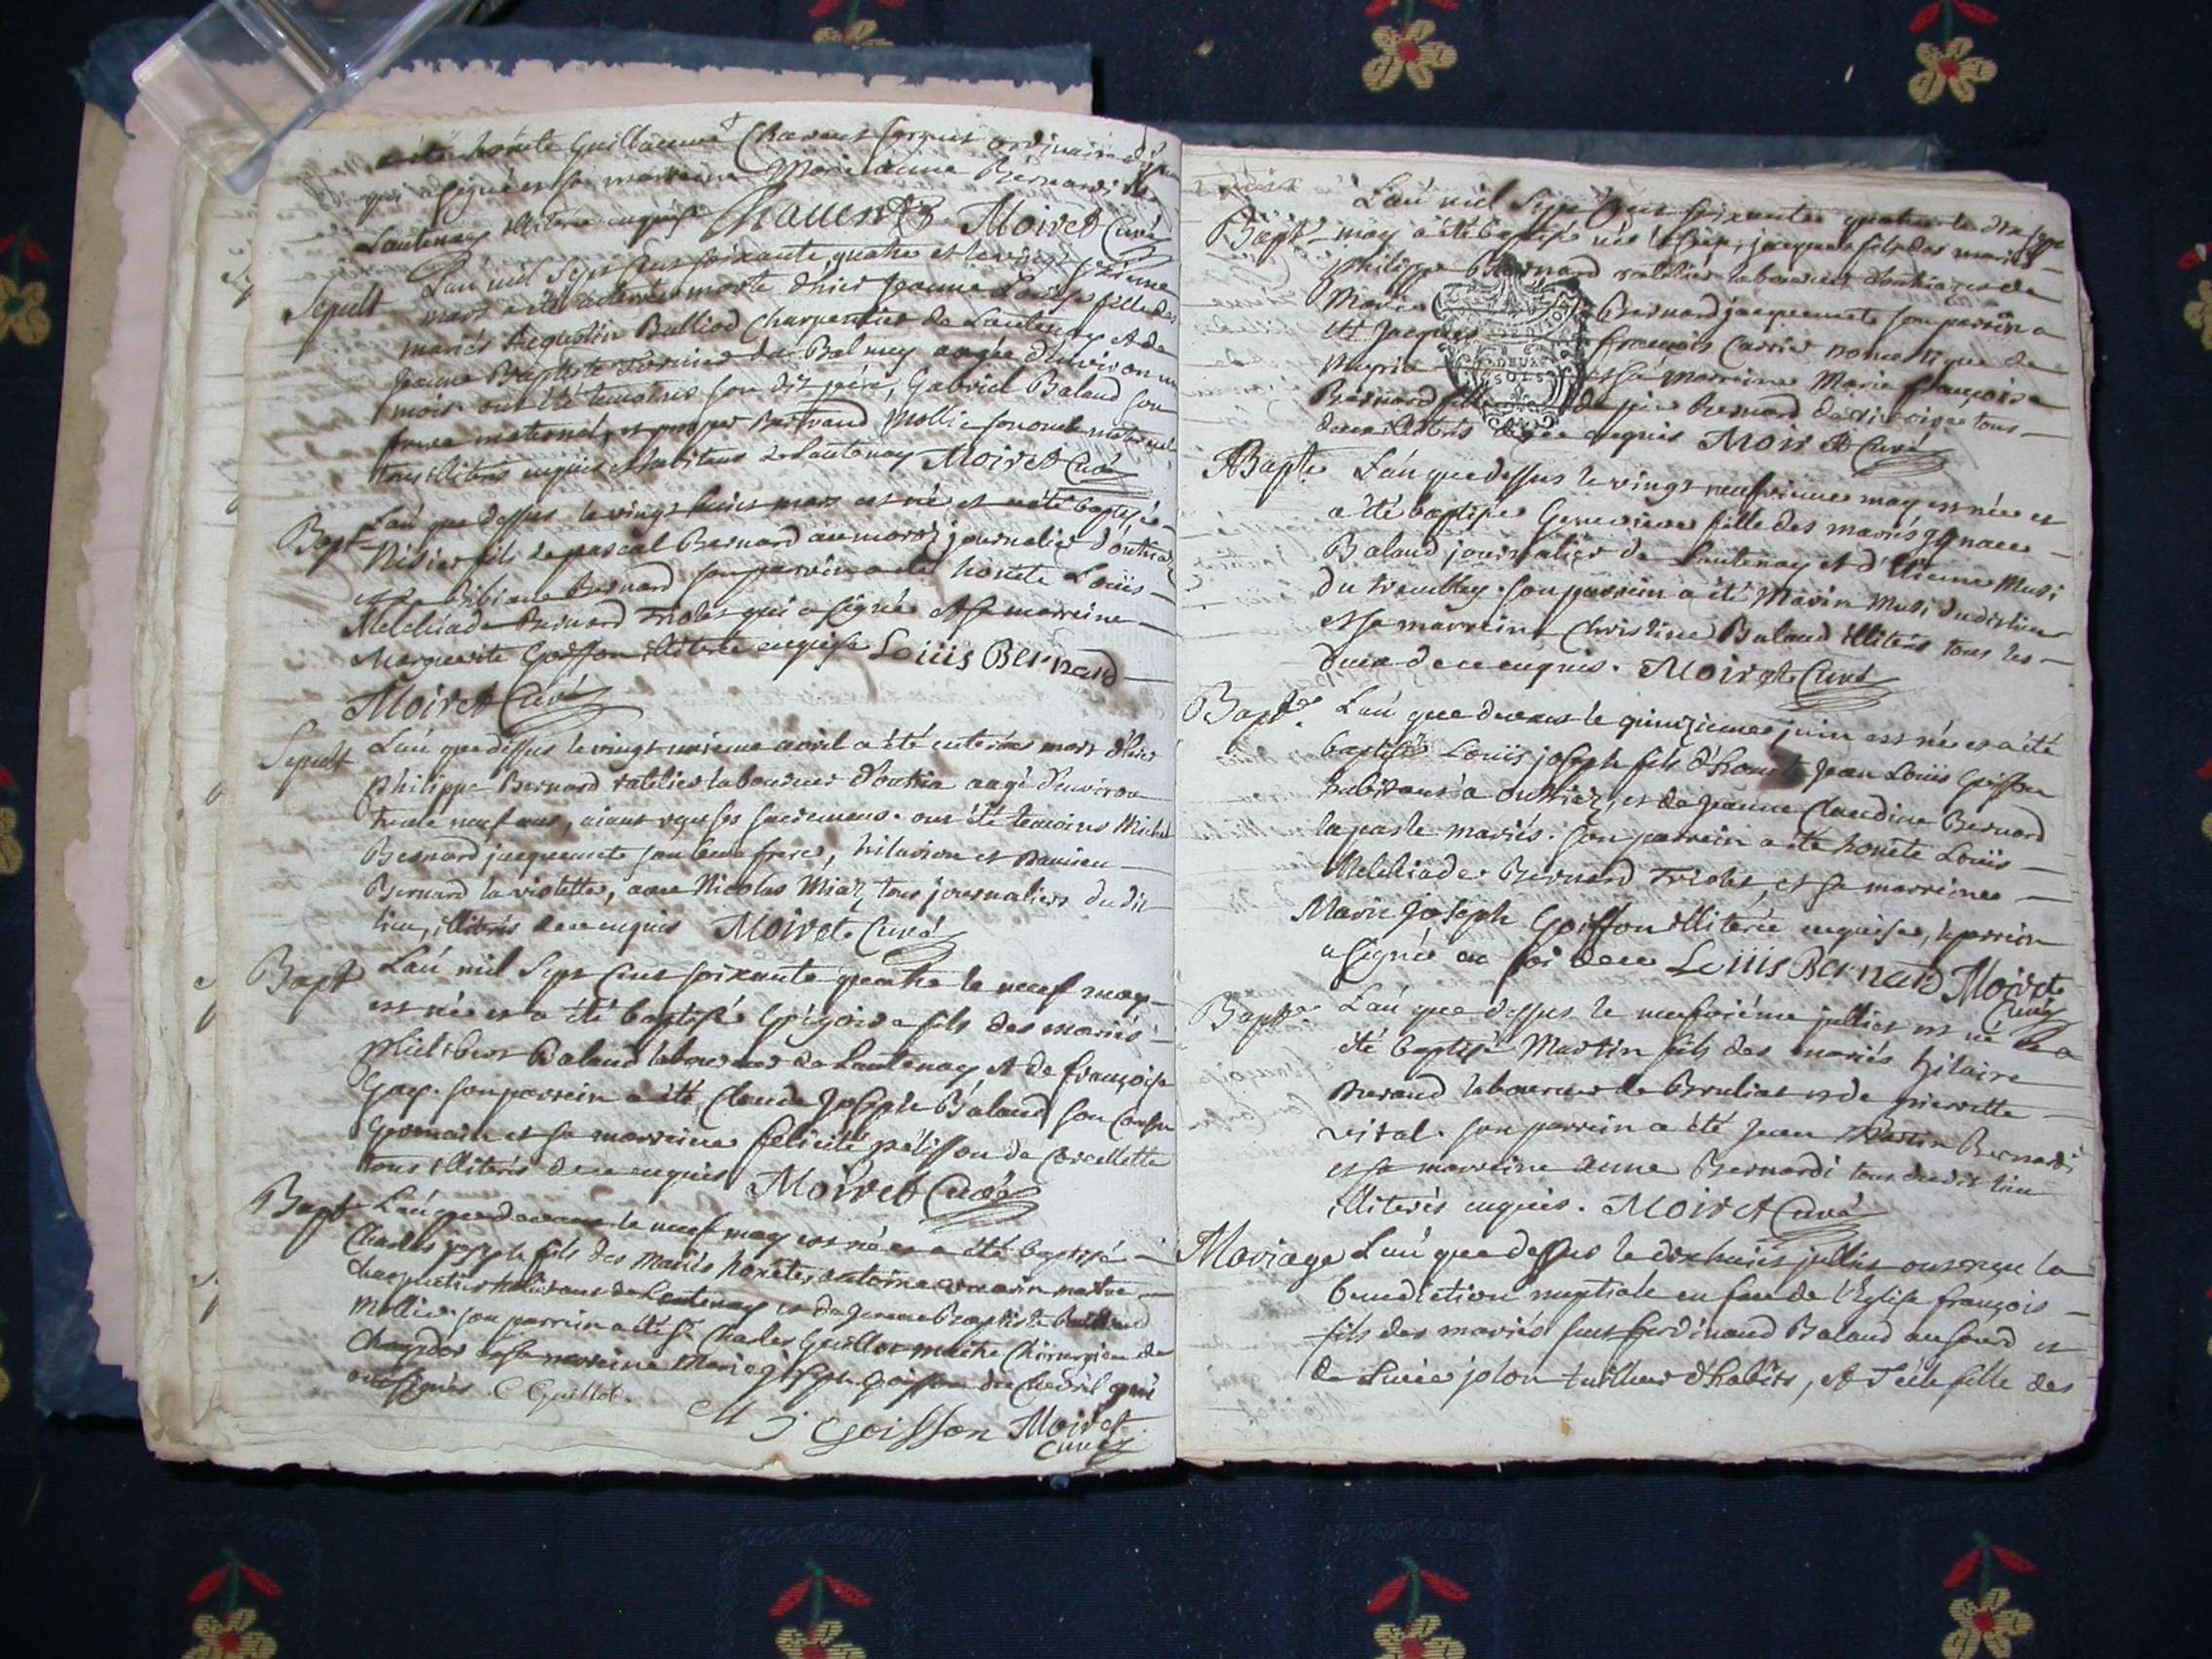 a été honête Guillaume Chavent sergent ordinaire
qui a signé et sa marreine Marianne Bernardi de
Lantenay illitere enquise Chavent Moiret Curé
Sepult L'an mil sept cens soixante quatre et le vingt sixieme
mars a été enterrée morte d'hier Jeanne Louise fille des
mariés Augustin Balliod Charpentier de Lantenay et de
Jeanne Baptiste de Balmey aagée d'environ un
mois ont été temoins son dit père, Gabriel Baland son
maternel, et prosper Bertrand Mollie son oncle maternel
tous illiterés enquis habitans de Lantenay Moiret Curé
Bapt L'an que dessus le vingt huit mars est né et a été baptisé
Nisier fils de pascal Bernard journalier d'outriaz
et de bibiane Bernard son parrein a été honête Louis
Melchiade Bernard Triolet qui a signé et sa marreine
Marguerite Goiffon illiterée enquise Louis Bernard
Moiret Curé
Sepult L'an que dessus le vingt unieme avril a été enterré mort d'hier
Philippe Bernard ratelier laboureur d'outria aagé d'environ
trente neuf ans, aiant reçu ses sacremens. ont été temoins Michel
Bernard jacquemete son beau frere, hilarion et Damien
Bernard la violette, avec Nicolas Miaz tous journaliers du dit
lieu, illiterés de ce enquis Moiret Curé
Bapt L'an mil sept cens soixante quatre le neuf may
est né et a été baptisé Grégoire fils des mariés
Philibert Baland laboureur de Lantenay et de françoise
Gay. son parrein a été Claude Joseph Baland son cousin
Germain et sa marreine felicité pélisson de Corcellette
tous illiterés de ce enquis Moiret Curé
Bapt L'an que devant le neuf may est né et a été baptisé
Charles joseph fils des mariés honête antoine maitre
charpentier habitant de Lantenay et de Jeanne Baptiste Bertrand
Mollie. son parrein a été Sr Charles Guillot maitre Chirurgien de
Champdor et sa marreine Marie Joseph Goiffon du Chevril qui
ont signés. C Guillot.
M J Goiffon Moiret
Curé
L'an mil sept cens soixante quatre le dix sept
Bapt may a été baptisé né le jacques fils des mariés
Philippe Bernard ratelier laboureur d'outriaz et de
Marie Bernard jacquemete son parrein a
été Jacques françois Carrier domestique de
Meyria et sa marreine Marie françoise
Bernard fille de Bernard tous
deux illiterés de ce enquis Moiret Curé
DEUX
SOLS
Bapt L'an que dessus le vingt neufvieme may est née et
a été baptisée Genevieve fille des mariés Ignace
Baland journalier de Lantenay et d'Etienne Musi
du son parrein a été Marin Musi dudit lieu
et sa marreine Christine Baland illiterés tous les
deux de ce enquis. Moiret Curé
Bapt L'an que dessus le quinzieme juin est né et a été
baptisé Louis joseph fils d'honête Jean Louis Goiffon
habitant a outriaz, et de Jeanne Claudine Bernard
laparle mariés. son parrein a été honête Louis
Melchiade Bernard Triolet, et sa marreine
Marie Joseph Goiffon illiterée enquise, le parrein
a signé en foi de ce Louis Bernard Moiret
Curé
Bapt L'an que dessus le neufvieme julliet est né et a
été baptisé Martin fils des mariés hilaire
Berand laboureur de Brenliat et de pierrette
vital. son parrein a été Jean Martin Bernardi
et sa marreine anne Bernardi tous du dit lieu
illiterés enquis. Moiret Curé
Mariage L'an que dessus le dix huit julliet ont reçu la
benediction nuptiale en face de l'Eglise françois
fils des mariés feus ferdinand Baland et
de Lucie jolon tailleur d'habits, et fille des